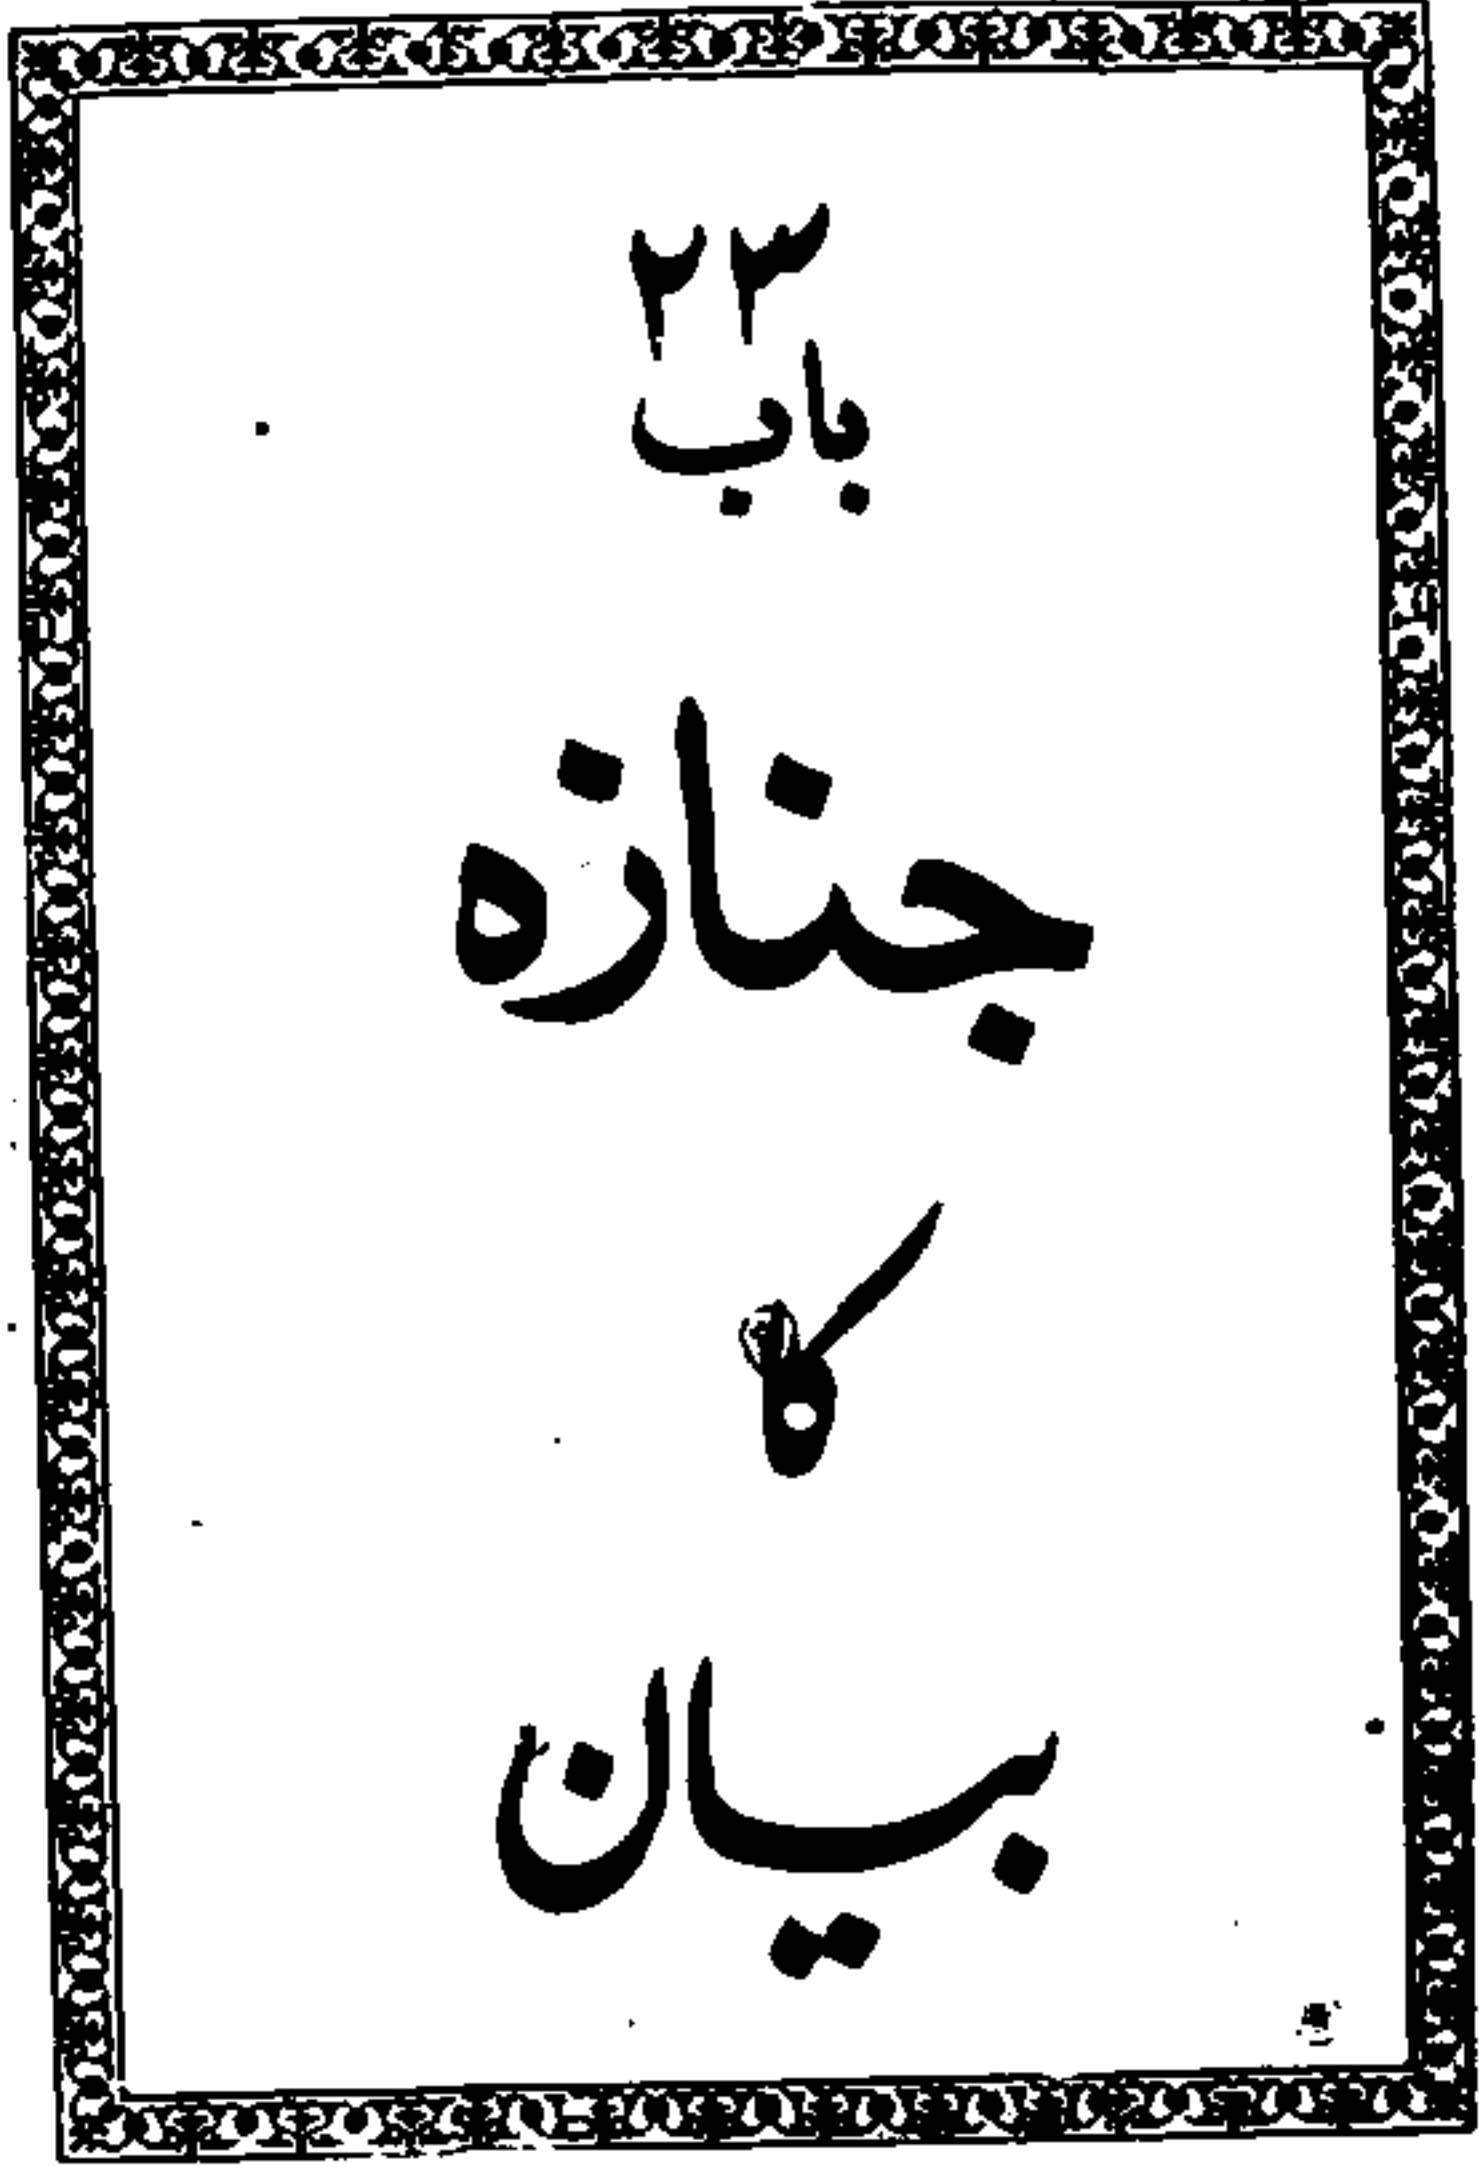 ۲۳
باب
جنازہ
کا
بیان